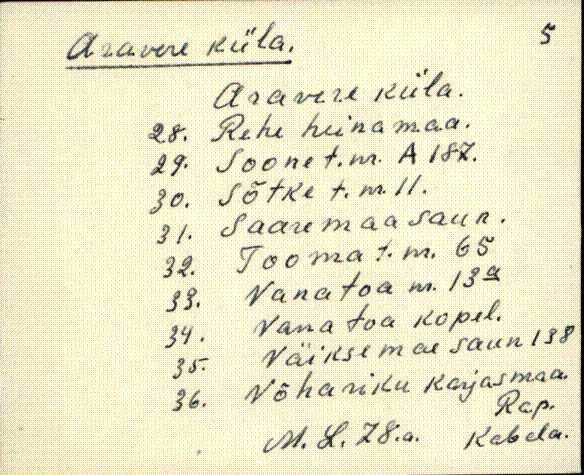 Aravere küla. 5
Aravere küla.
28. Rehe heinamaa.
29. Soone t. nr. A 187.
30. Sõtke t. nr 11.
31. Saaremaa saun.
32. Tooma t. nr. 65
33. Vanatoa nr. 13a
34. Vana toa kopel.
35. Väiksemäe saun 138
36. Võhariku karjasmaa.
Rap.
M. L. 78.a. Kabala.